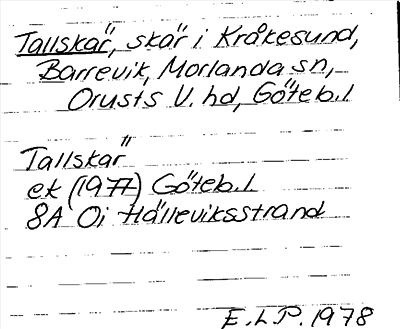 Tallskär, skär i Kråkesund,
Barrevik, Morlanda sn,
Orusts V. hd, Göteb.l
Tallskär
ek (1977) Göteb.l
8A 0i Hälleviksstrand
E.L.P. 1978